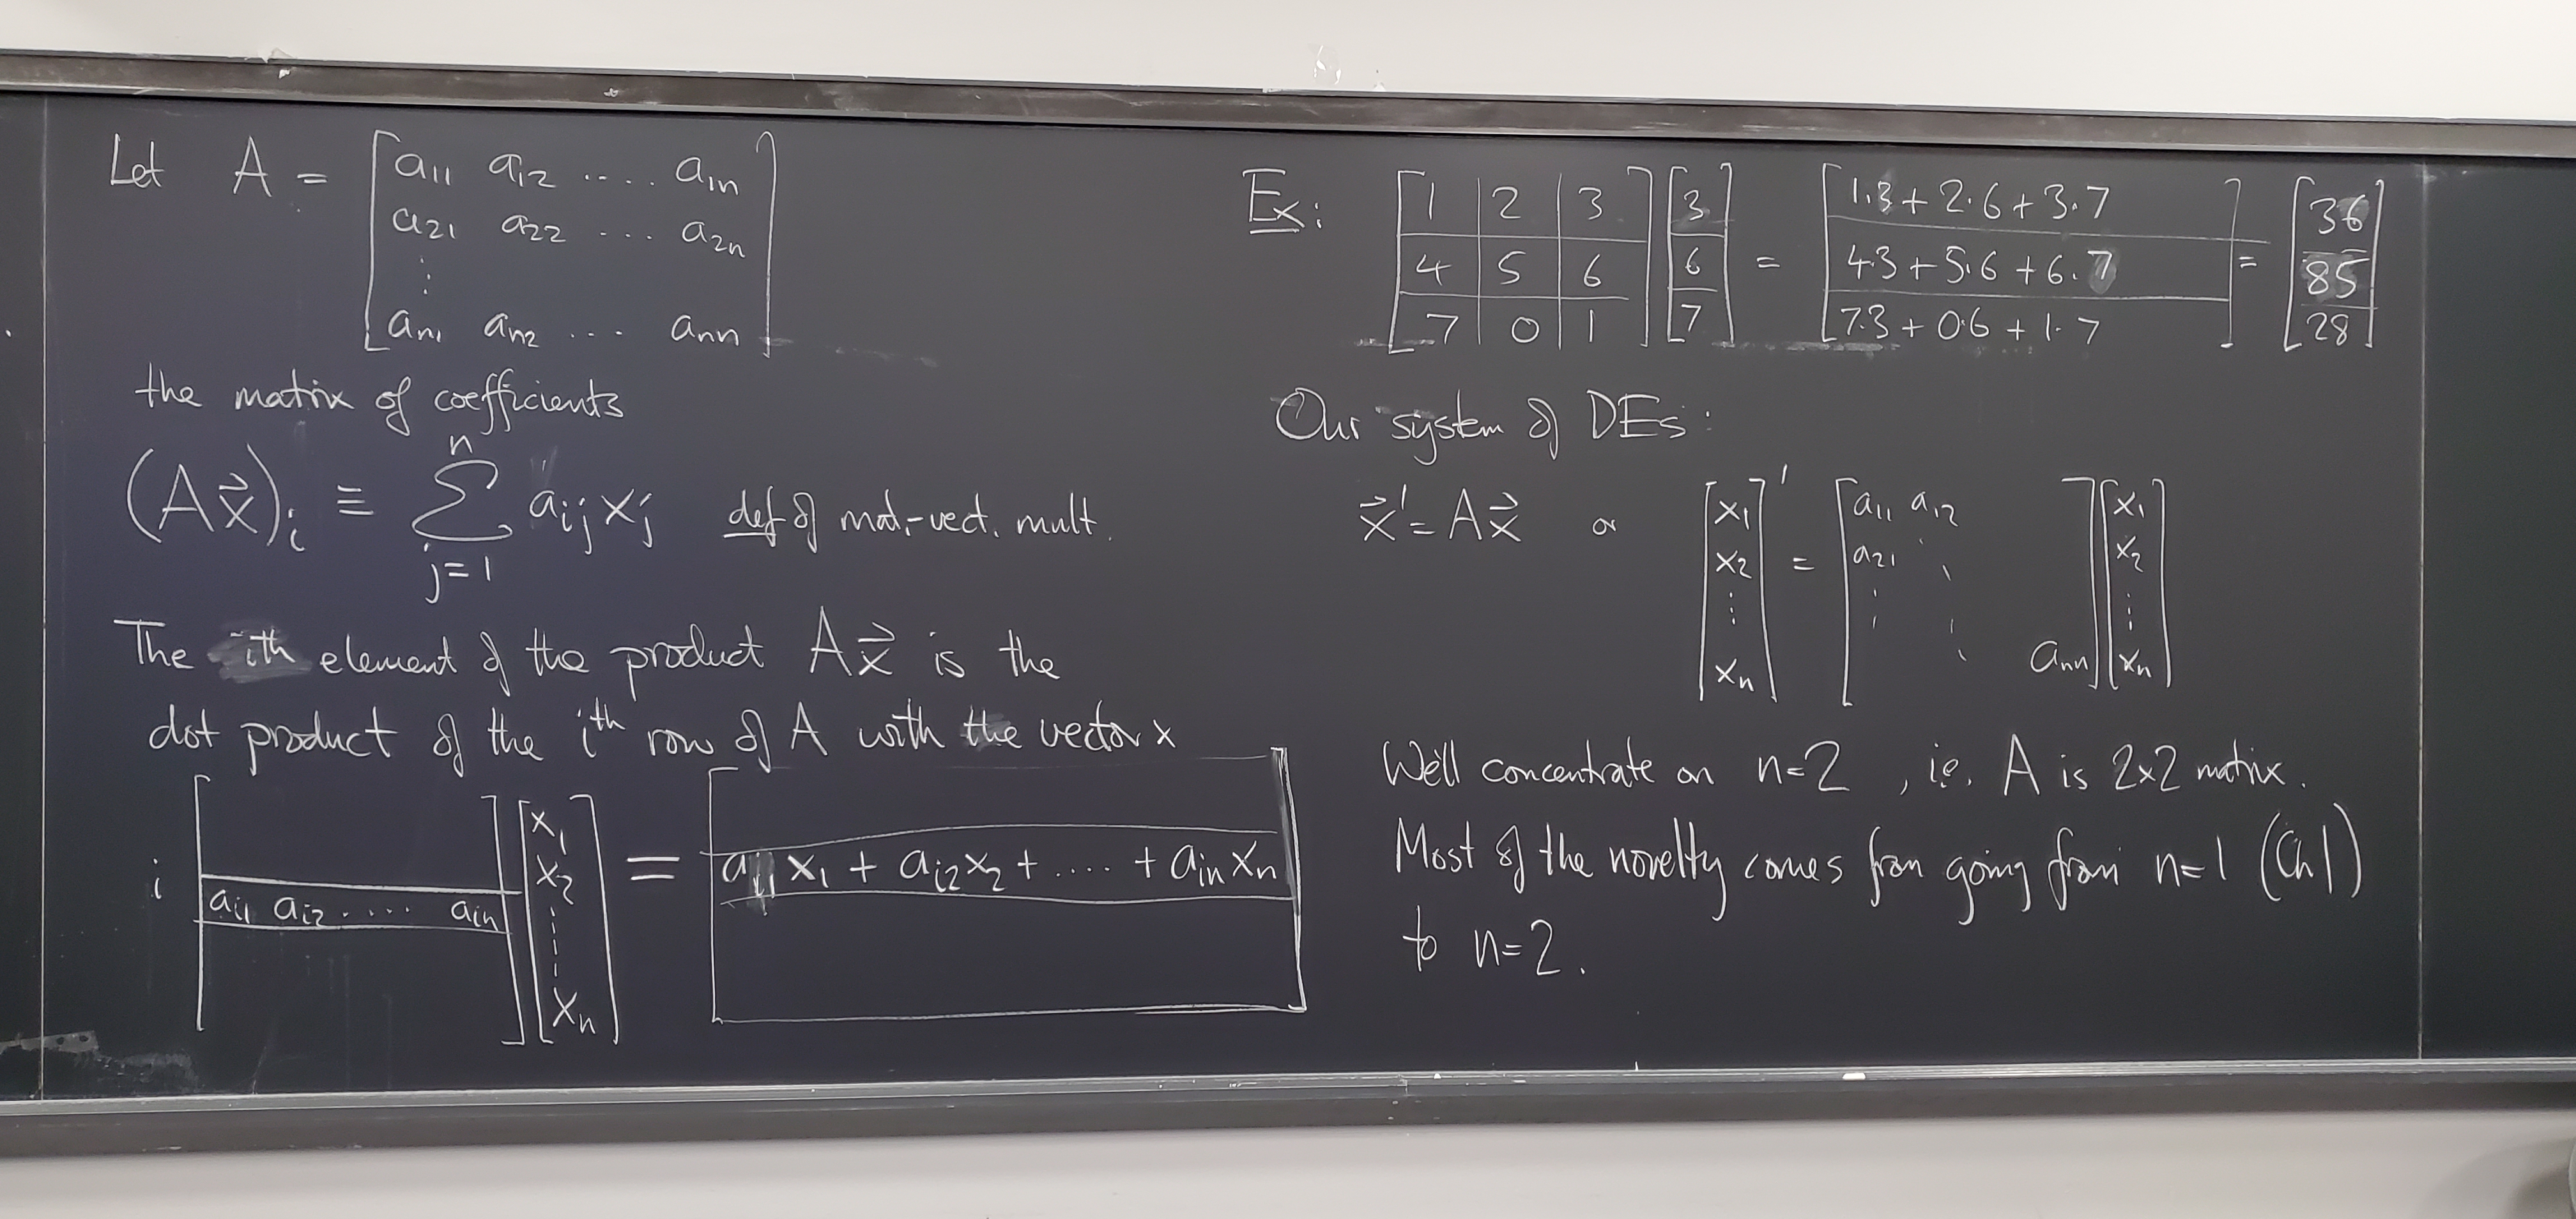 Let A = [a11 a12 .... a1n
a21 a22 ... a2n
⋮
an1 an2 ... ann]
the matrix of coefficients
(Ax⃗)i ≡ Σ_{j=1}^{n} aij xj def of mat.-vect. mult.
The ith element of the product Ax⃗ is the
dot product of the ith row of A with the vector x
i [ai1 ai2 .... ain] [x1 x2 ⋮ xn] = [ai1 x1 + ai2 x2 + .... + ain xn]
Ex: [1 2 3] [3] = [1·3 + 2·6 + 3·7] = [36]
[4 5 6] [6] [4·3 + 5·6 + 6·7] [85]
[7 0 1] [7] [7·3 + 0·6 + 1·7] [28]
Our system of DEs:
x⃗' = Ax⃗ or [x1 x2 ⋮ xn]' = [a11 a12 a21 ⋱ ann] [x1 x2 ⋮ xn]
We'll concentrate on n=2, i.e. A is 2x2 matrix.
Most of the novelty comes from going from n=1 (Ch1)
to n=2.